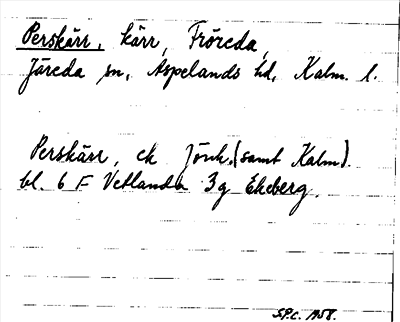 Perskärr, kärr, Fröreda,
Järeda sn, Aspelands hd, Kalm. l.
Perskärr, ek Jönk. (samt Kalm).
bl. 6 F Vetlanda 3g Ekeberg.
S.P.C. 1958.